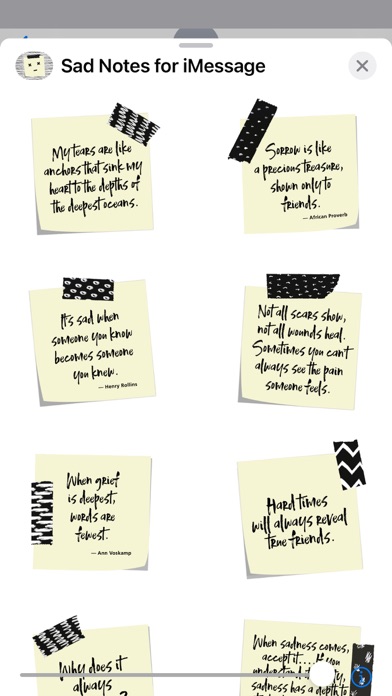 Sad Notes for iMessage
My tears are like
anchors that sink my
heart to the depths of
the deepest oceans.
Sorrow is like
a precious treasure,
shown only to
friends.
— African Proverb
It's sad when
someone you know
becomes someone
you knew.
— Henry Rollins
Not all scars show,
not all wounds heal.
Sometimes you can't
always see the pain
someone feels.
When grief
is deepest,
words are
fewest.
— Ann Voskamp
Hard times
will always reveal
true friends.
Why does it
always
?
When sadness comes,
accept it.... If you
understand it
sadness has a depth